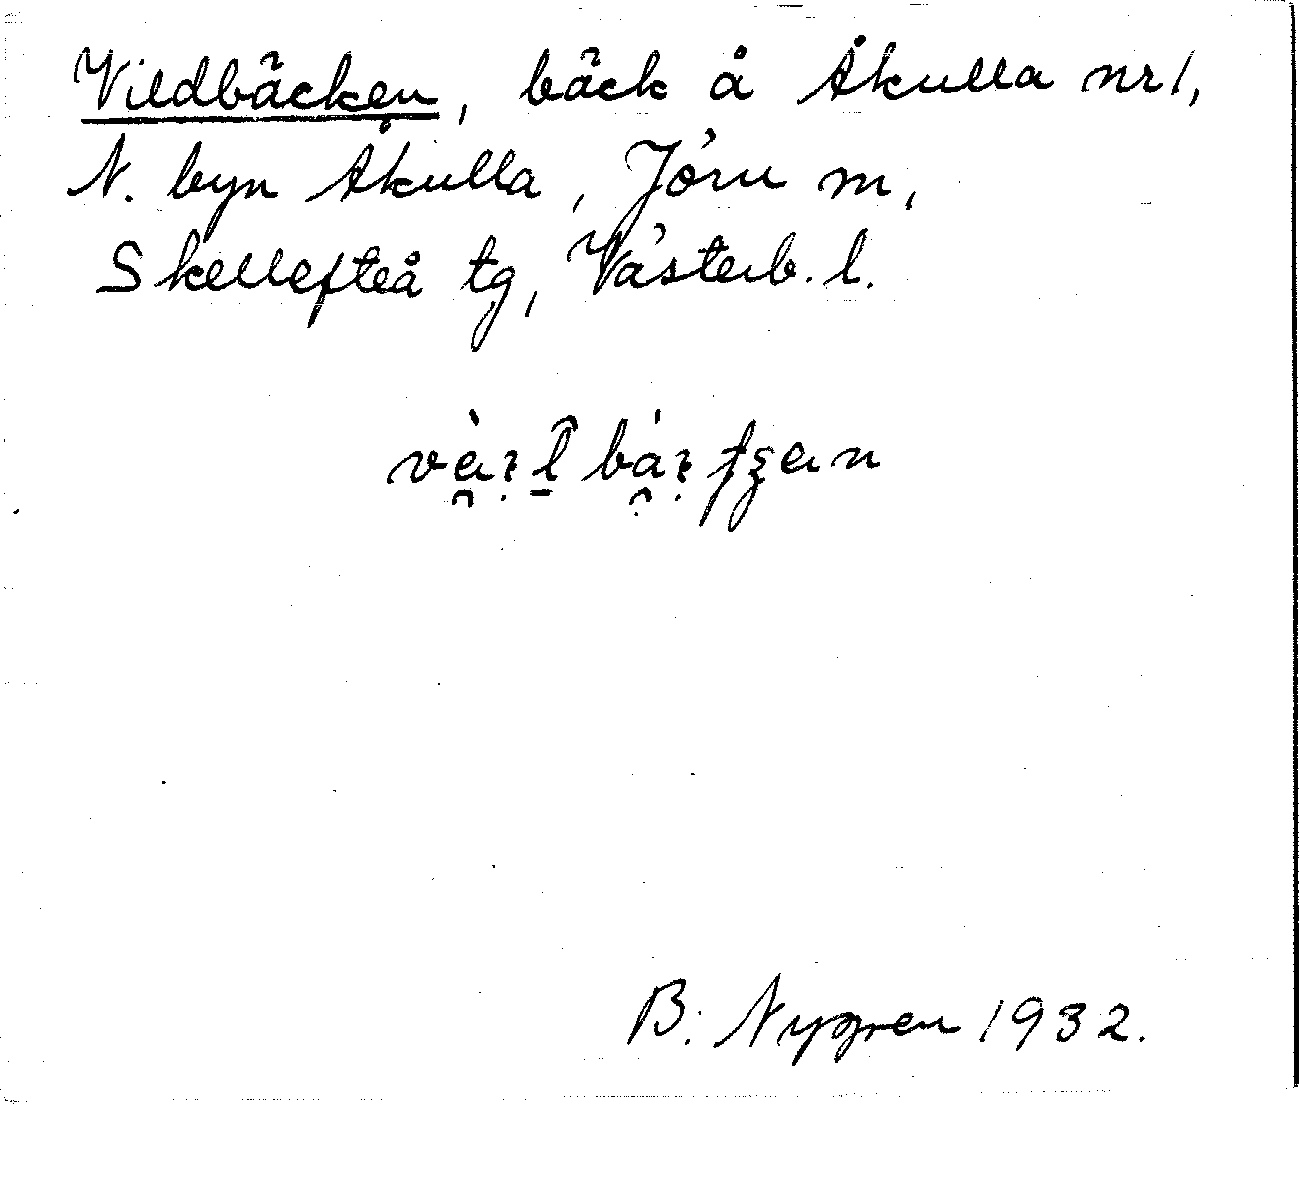 Vildbäcken, bäck å Åkulla nr 1,
N. byn Åkulla, Jörn m,
Skellefteå tg, Västerb. l.
B. Nygren 1932.